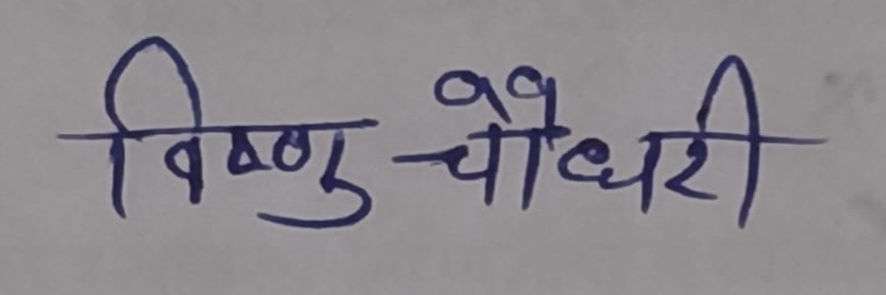 विष्णु चौधरी